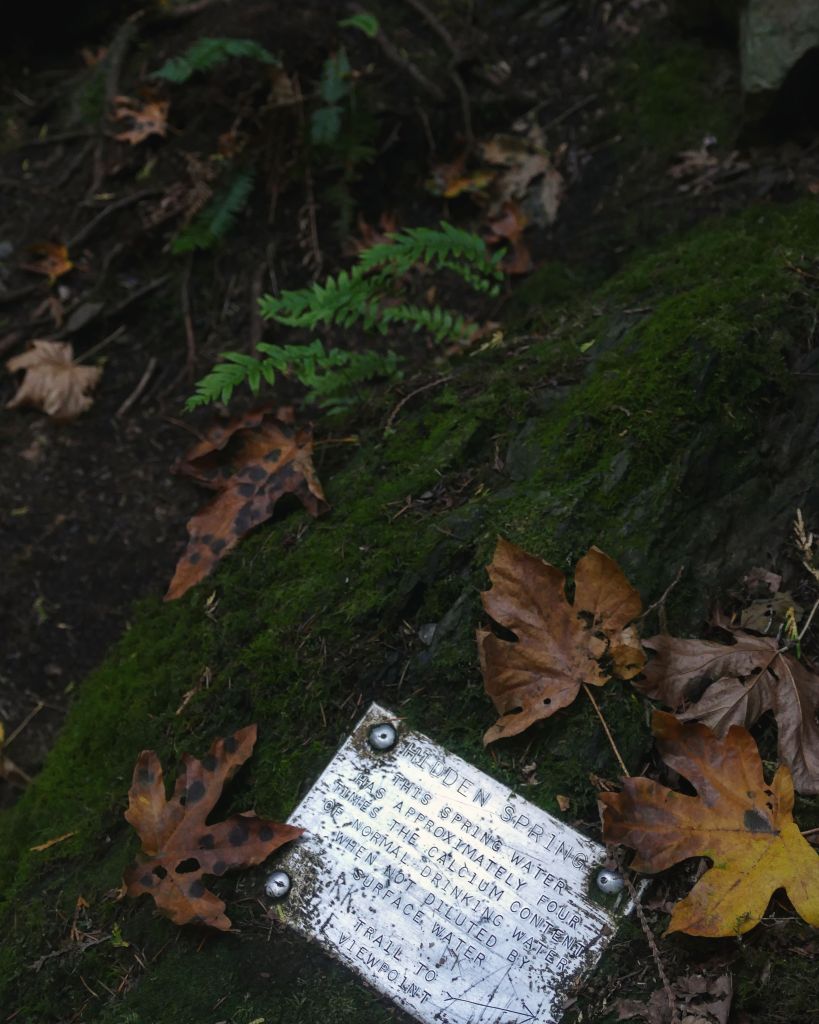 HIDDEN SPRING
THIS SPRING WATER
HAS APPROXIMATELY FOUR
TIMES THE CALCIUM CONTENT
OF NORMAL DRINKING WATER
WHEN NOT DILUTED BY
SURFACE WATER
TRAIL TO
VIEWPOINT